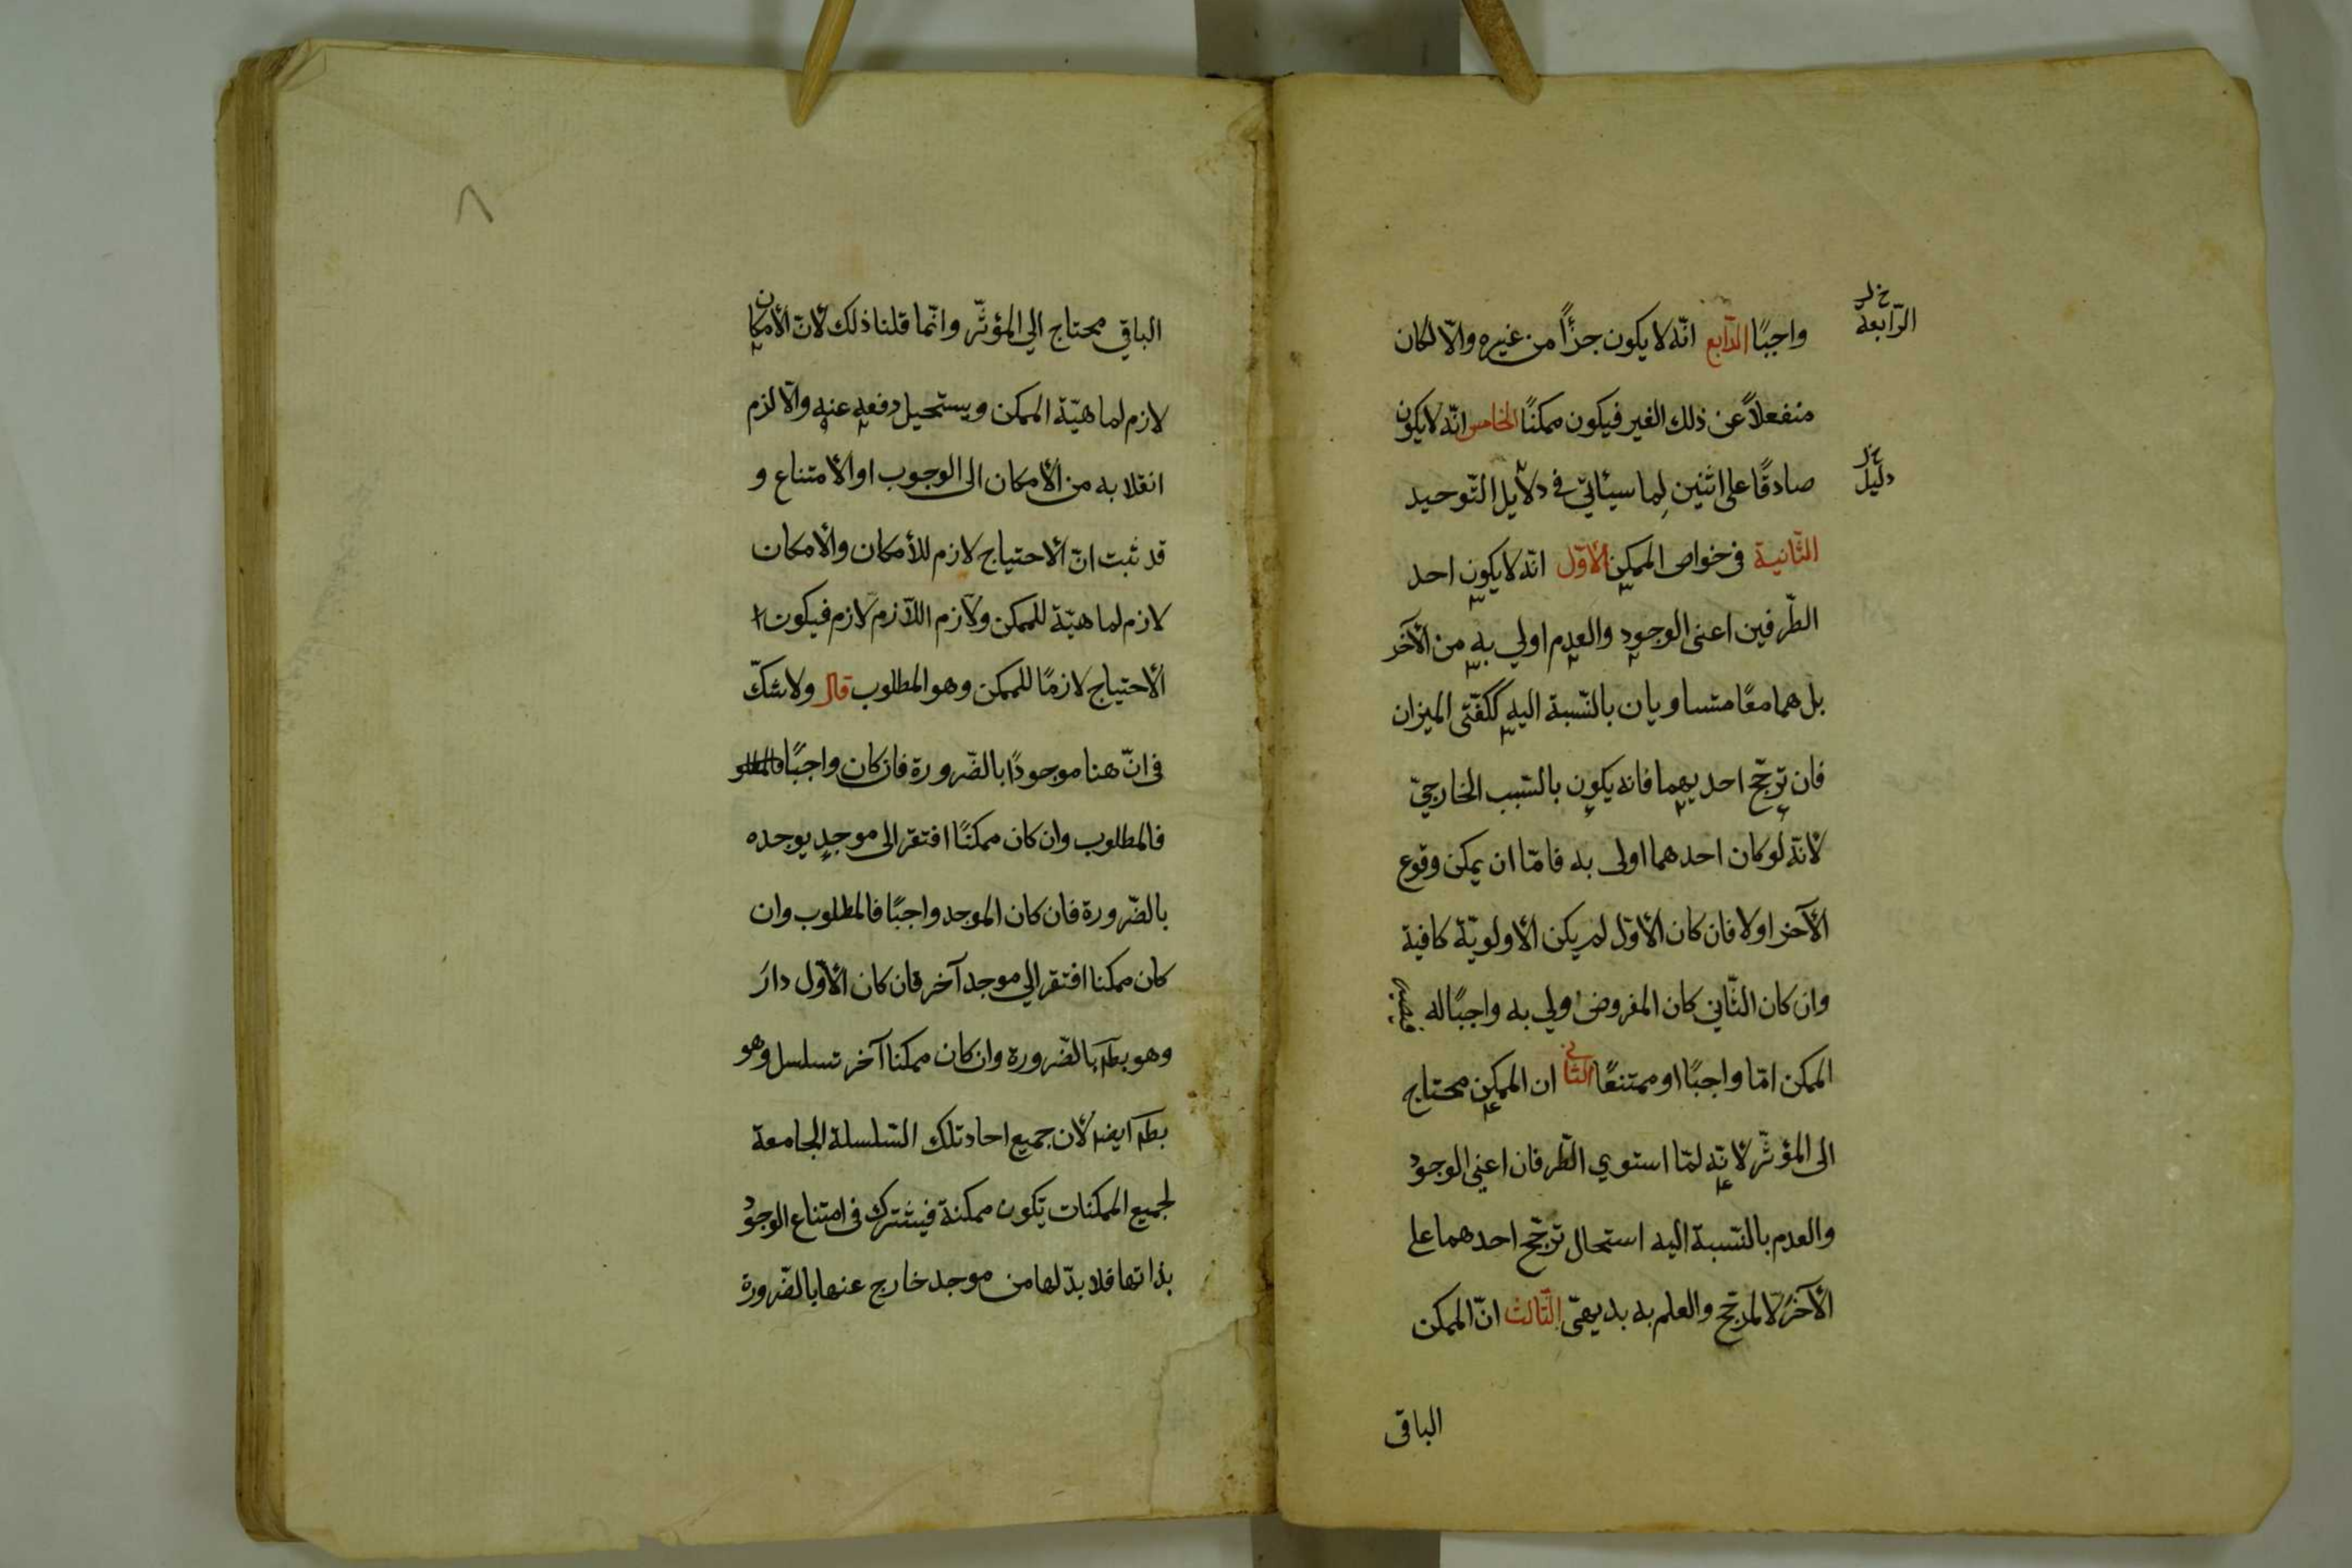 واجبًا الرّابع انّه لا يكون جزأً من غيره والّا لكان
الرّابعة خ ل
منفعلاً عن ذلك الغير فيكون ممكنًا الخامس انّه لا يكون
صادقًا على اثنين لِما سيأتي في دلايل التّوحيد
دليل خ ل
الثّانية في خواص الممكن الأوّل انّه لا يكون احد
الطّرفين اعنى الوجود والعدم اولي به من الآخر
بل هما معًا متساويان بالنّسبة اليه ككفّتى الميزان
فان ترجّح احديهما فانه يكون بالسّبب الخارجيّ
لانّه لو كان احدهما اولى به فامّا ان يمكن وقوع
الآخر اولا فان كان الأوّل لم يكن الأولويّة كافية
وان كان الثّاني كان المفروض اولي به واجبًا له
الممكن امّا واجبًا او ممتنعًا الثانى ان الممكن محتاج
الى المؤثّر لانّه لمّا استوي الطّرفان اعني الوجود
والعدم بالنّسبة اليه استحال ترجّح احدهما على
الآخر الّا لمرجّح والعلم به بديهىّ الثّالث انّ الممكن
الباقى
٨
الباقي محتاج الي المؤثّر وانّما قلنا ذلك لانّ الأمكان
لازم لماهيّة الممكن ويستحيل دفعه عنه والّا لزم
انقلابه من الأمكان الى الوجوب او الأمتناع و
قد ثبت انّ الأحتياج لازم للأمكان والأمكان
لازم لماهيّة للممكن ولازم اللّازم لازم فيكون ا
الأحتياج لازمًا للممكن وهو المطلوب قال ولا شكّ
في انّ هنا موجودًا بالضّرورة فان كان واجبًا فالمطلو
فالمطلوب وان كان ممكنًا افتقر الى موجدٍ يوجده
بالضّرورة فان كان الموجد واجبًا فالمطلوب وان
كان ممكنا افتقر الي موجد آخر فان كان الأوّل دارَ
وهو بط بالضّرورة وان كان ممكنا آخر تسلسل وهو
بط ايضا لأن جميع احاد تلك السّلسلة الجامعة
لجميع الممكنات تكون ممكنة فيشترك في امتناع الوجود
بذاتها فلا بدّ لها من موجد خارج عنها بالضّرورة